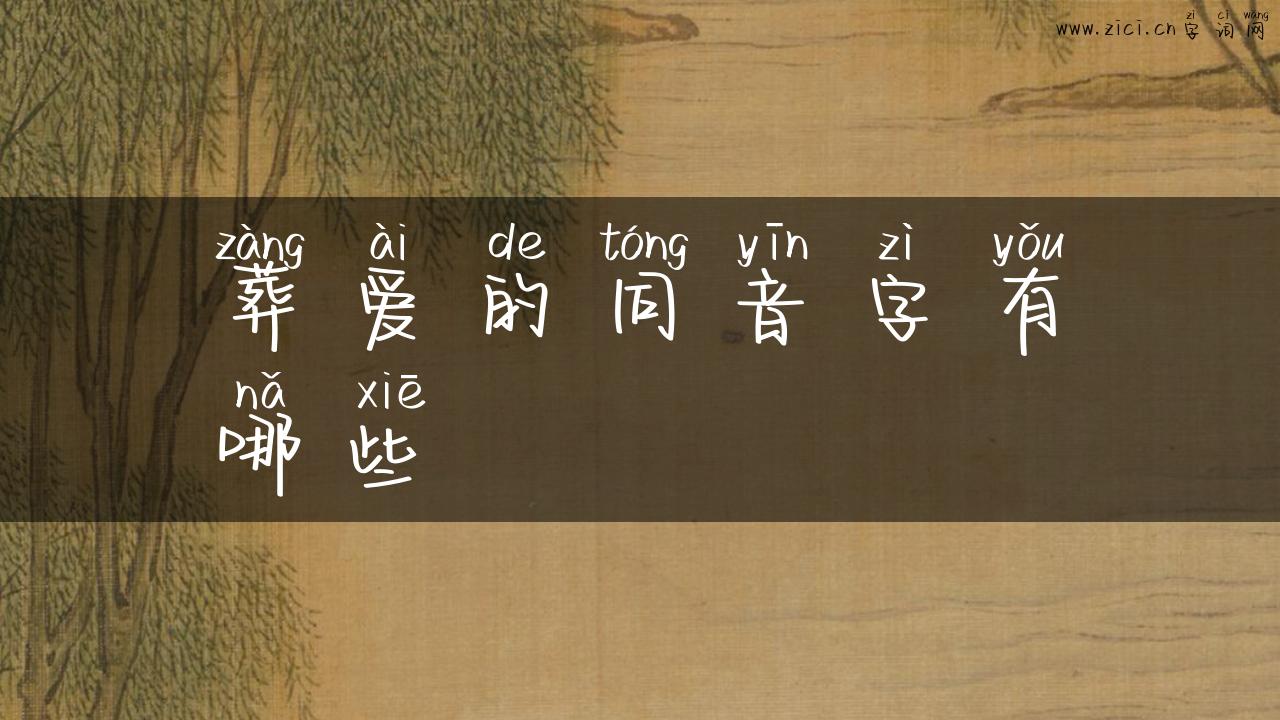 zì cí wǎng
www.zici.cn 字 词 网
zàng ài de tóng yīn zì yǒu
葬 爱 的 同 音 字 有
nǎ xiē
哪 些